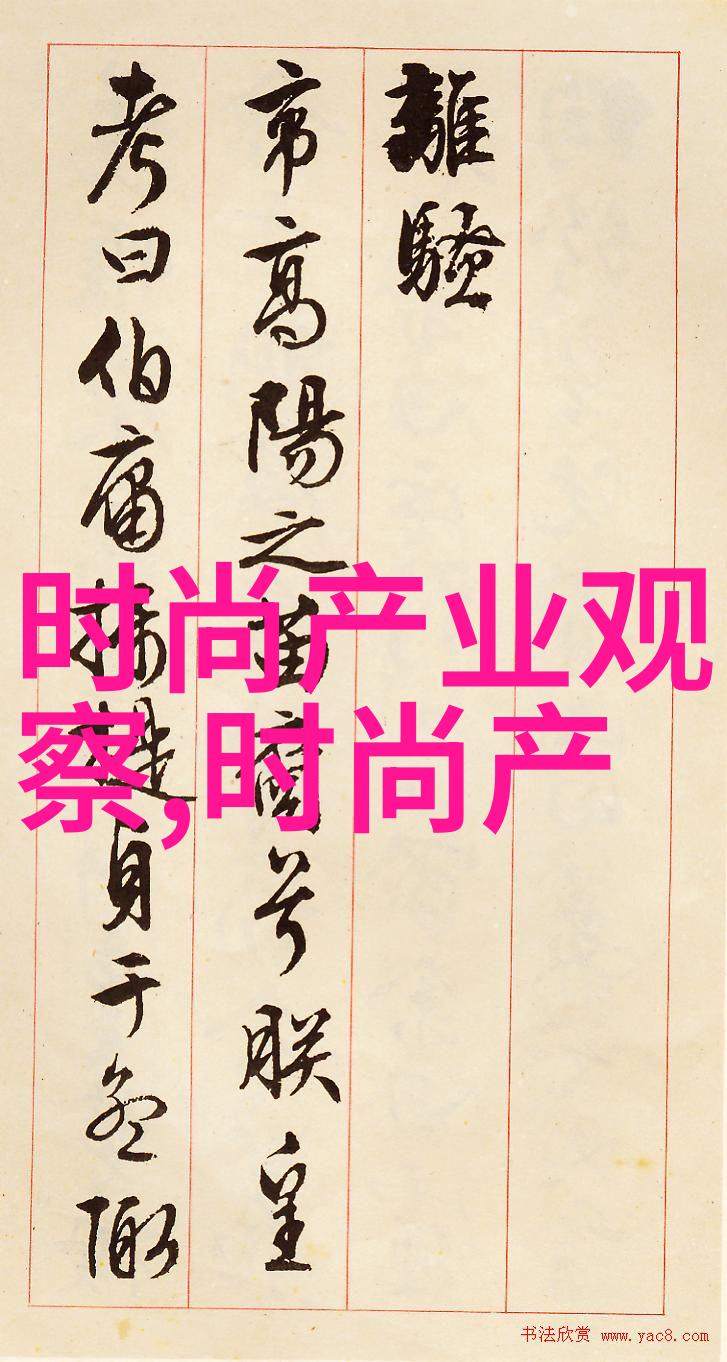 離騷
帝高陽之苗裔兮朕皇
考曰伯庸攝提貞于孟陬
时尚产业观
察,时尚产
书法欣赏 www.yac8.com